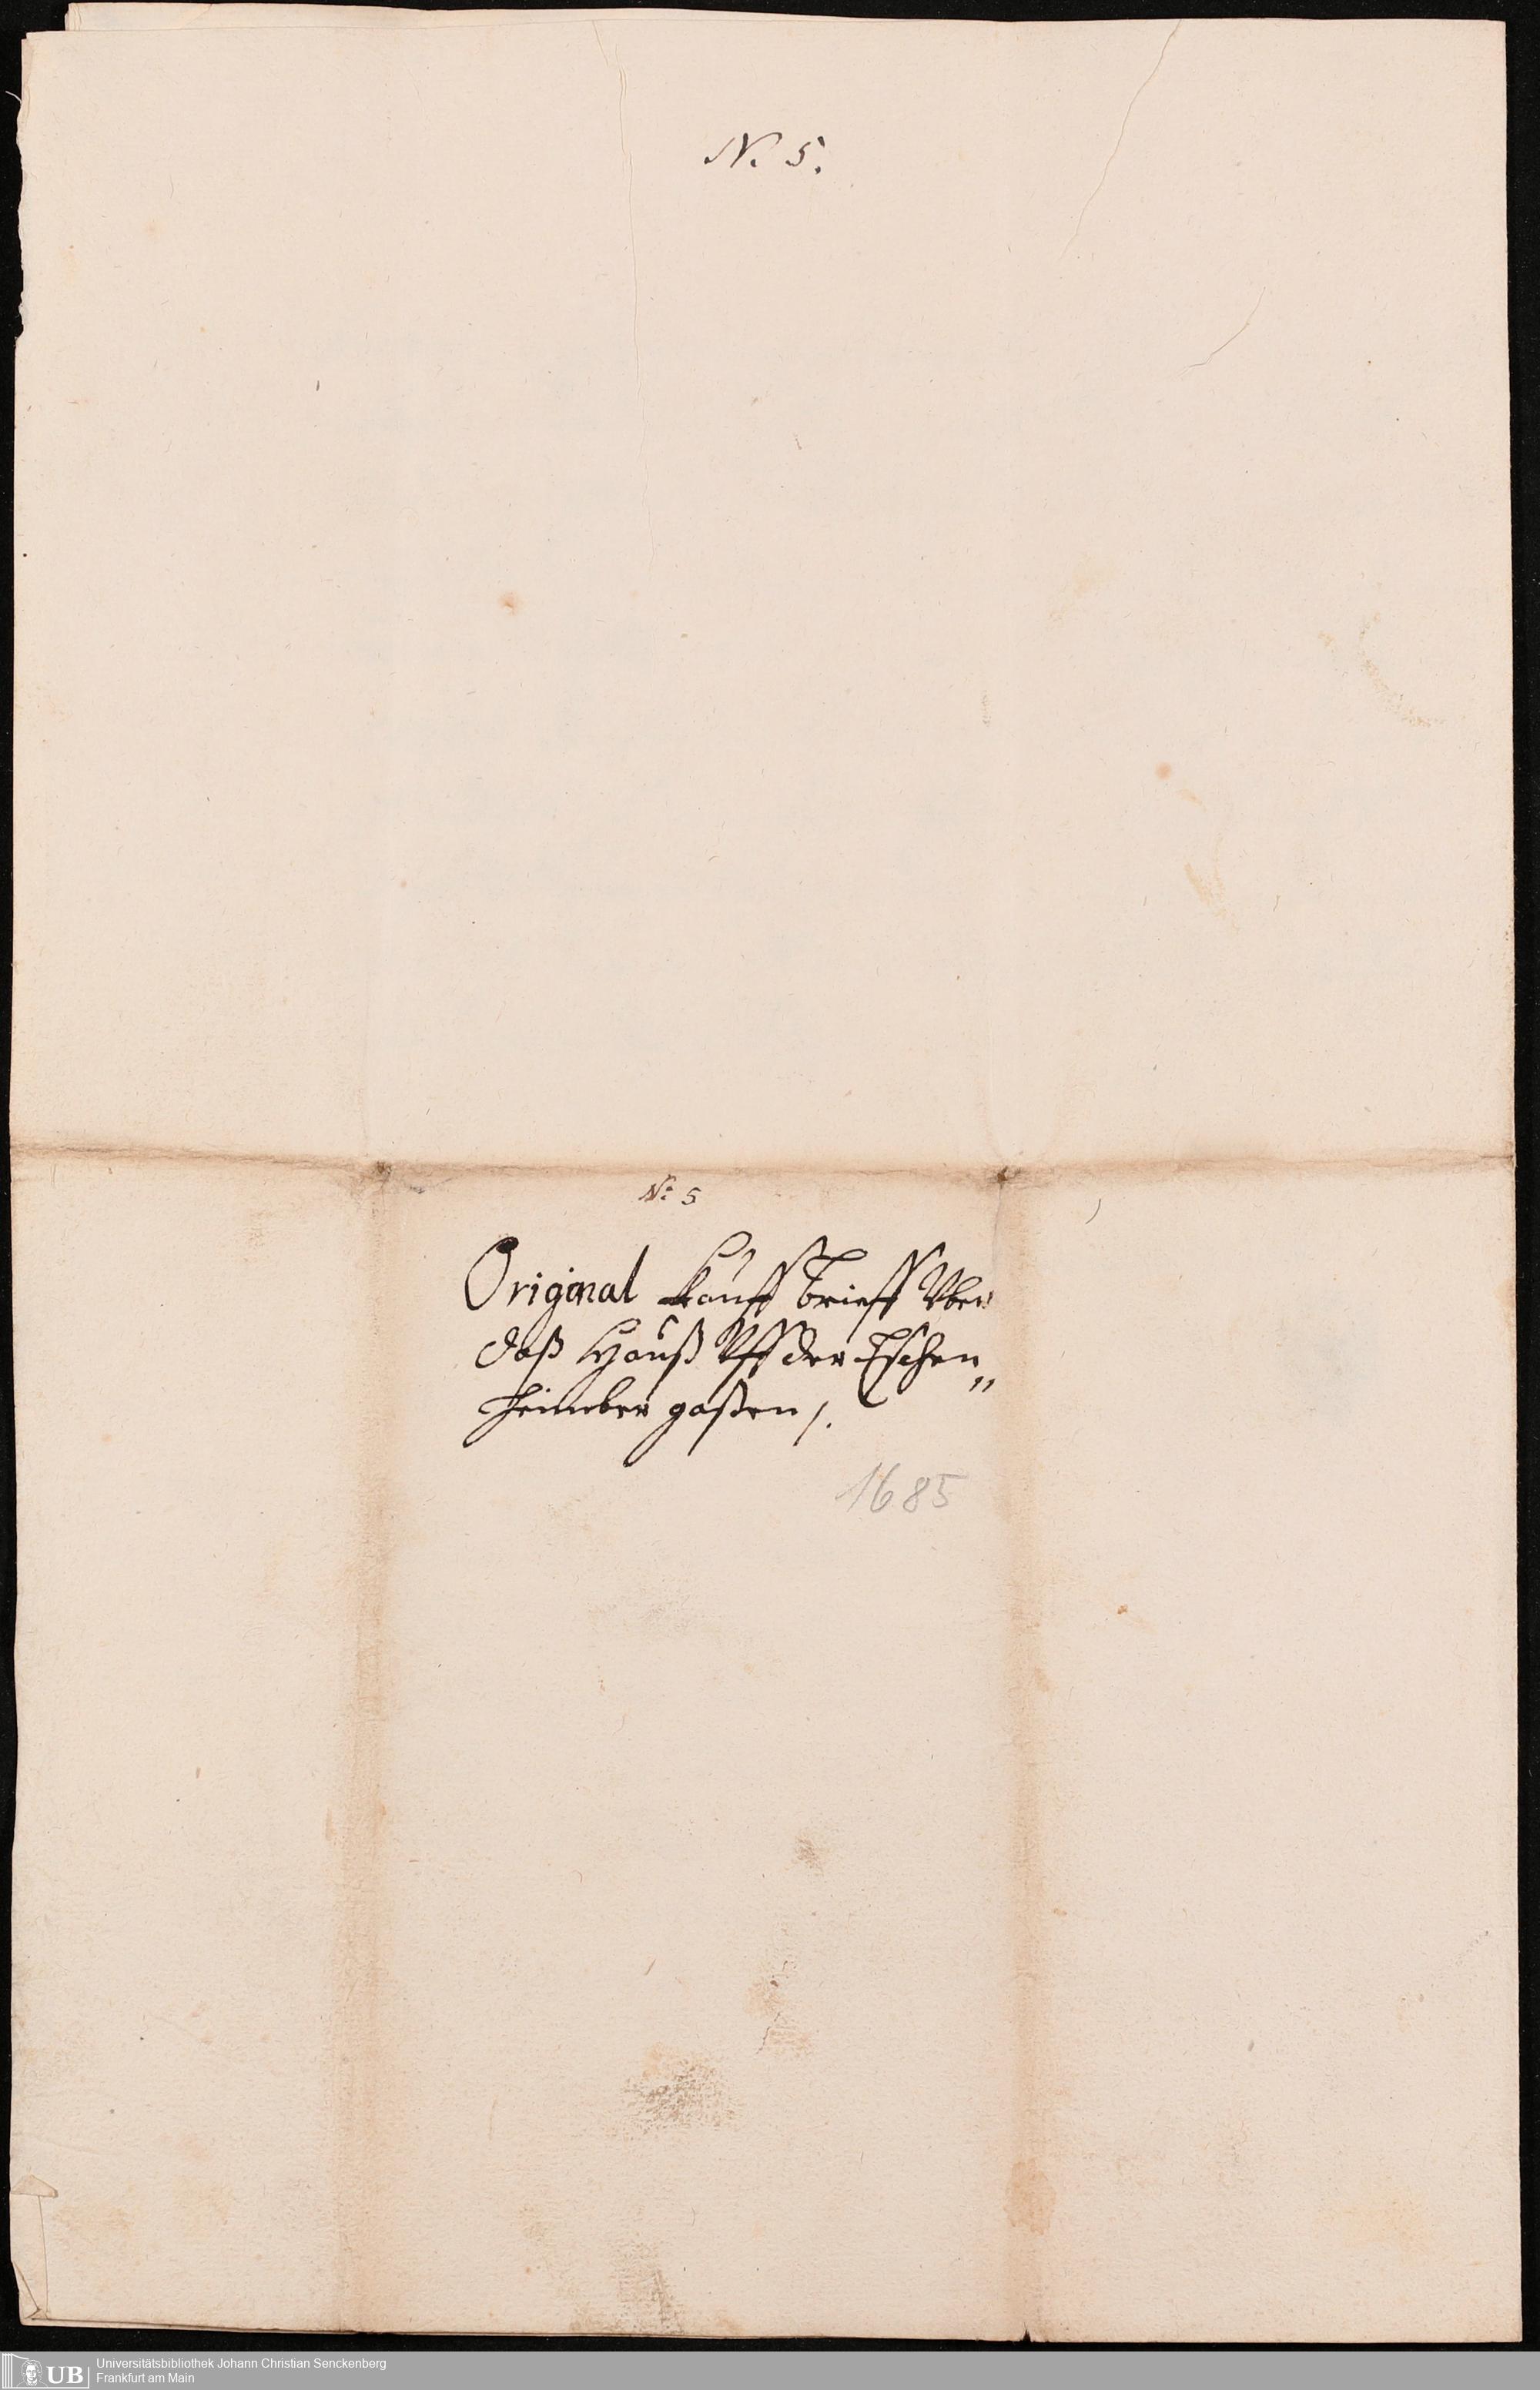 N. 5.
N: 5
Original Kauff Brieff Vber
daß Hauß Vff der Eschen„
heimber gaßen /.
1685
UB
Universitätsbibliothek Johann Christian Senckenberg
Frankfurt am Main